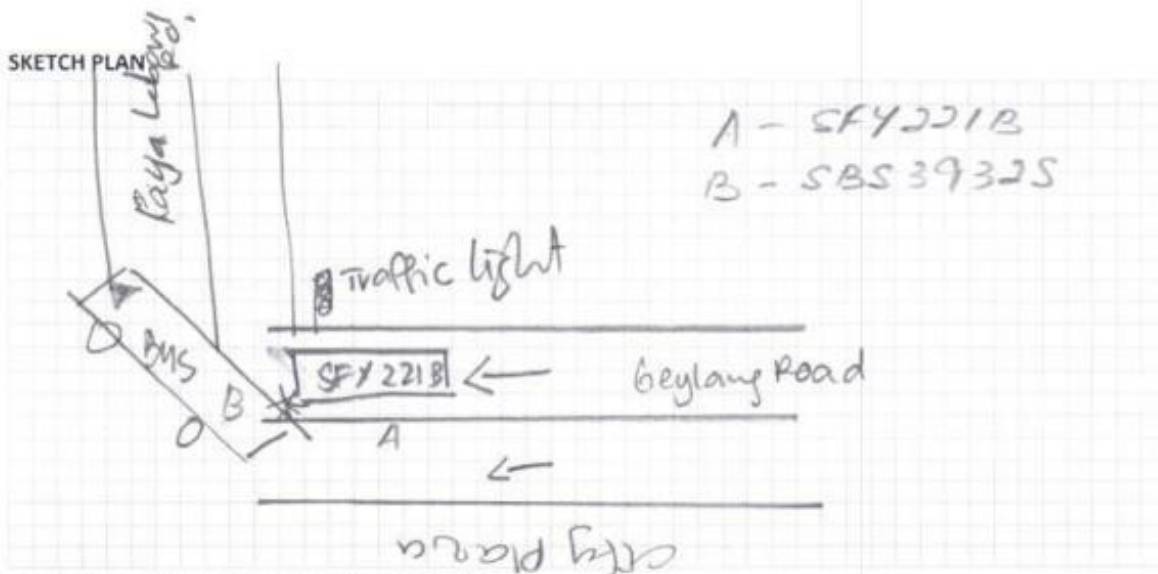 SKETCH PLAN
Paya Lebar Rd.
A - SFY221B
B - SBS3932S
Traffic light
BUS
B
SFY221B
A
Geylang Road
City Plaza